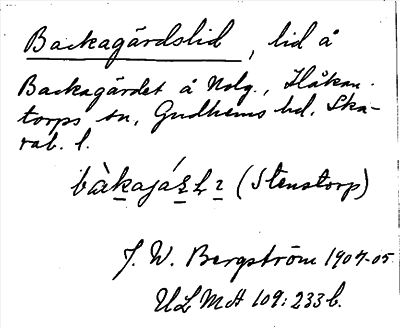 Backagärdslid, lid å
Backagärdet å Nolg., Håkan-
torps sn, Gudhems hd. Ska-
rab. l.
(Stenstorp)
J. W. Bergström 1904-05.
ULMA 109:233 b.